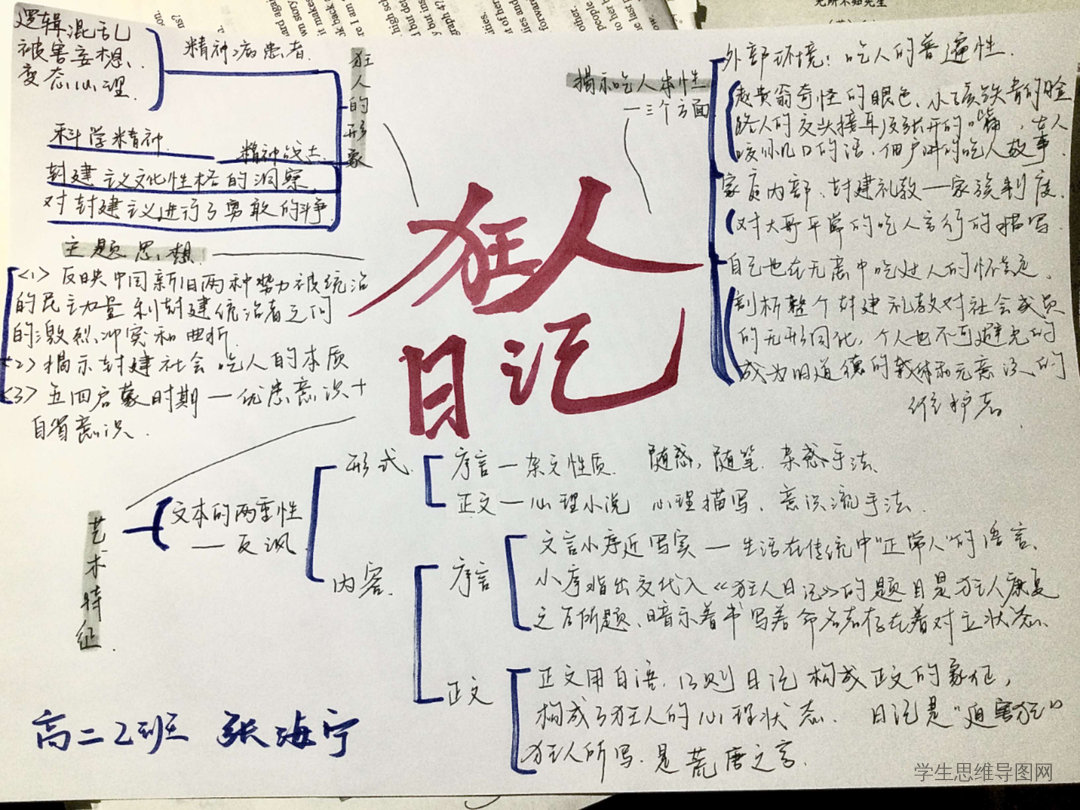 狂人
日记
逻辑混乱
被害妄想、
变态心理.
精神病患者
狂人的形象
科学精神.
精神战士
封建主义文化性格的洞察
对封建主义进行了勇敢的斗争
主题思想.
<1> 反映中国新旧两种势力被统治
的民主力量和封建统治者之间
的激烈冲突和曲折
<2> 揭示封建社会吃人的本质
<3> 五四启蒙时期—忧患意识+
自省意识.
揭示吃人本性
—三个方面
外部环境: 吃人的普遍性.
赵贵翁奇怪的眼色、小孩铁青的脸
路人的交头接耳及张开的嘴, 女人
咬你几口的话、佃户讲的吃人故事.
家庭内部、封建礼教—家族制度.
对大哥平常的吃人言行的描写.
自己也在无意中吃过人的怀疑.
剖析整个封建礼教对社会成员
的无形同化, 个人也不可避免的
成为旧道德的载体和无意识的
维护者
艺术特征
文本的两重性
—反讽
形式.
序言—杂文性质. 随感, 随笔. 杂感手法
正文—心理小说 心理描写、意识流手法.
内容.
序言
文言小序近写实—生活在传统中"正常人"的语言.
小序指出交代入《狂人日记》的题目是狂人康复
之后所题、暗示着书写着命名者存在着对立状态.
正文
正文用白语. 则日记构成正文的象征,
构成了狂人的心理状态. 日记是"迫害狂"
狂人所写. 是荒唐之言.
高二2班 张海宁
学生思维导图网